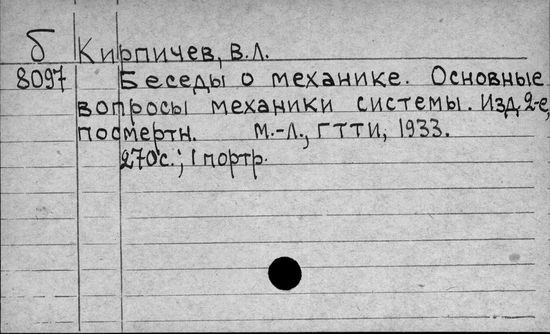 б Кирпичев, В.Л.
8097 Беседы о механике. Основные
вопросы механики системы. Изд. 2-е,
посмертн. М.-Л., ГТТИ, 1933.
270с.; 1 портр.